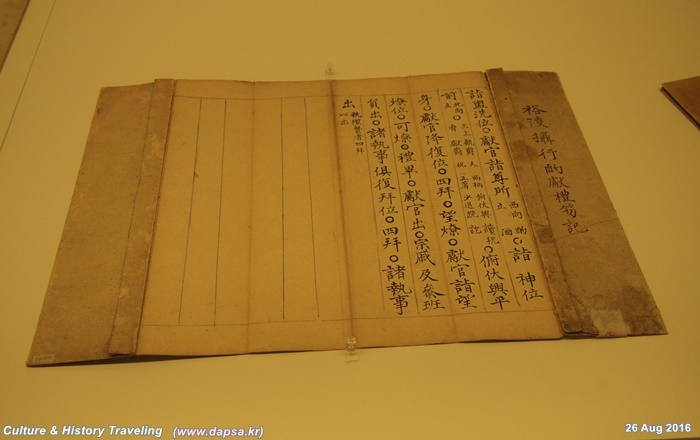 裕陵攝行酌獻禮笏記
詣盥洗位○獻官詣尊所 西向立 酌酒 ○詣 神位
前 北向立 三上香 執爵 獻爵 讀祝 ○俯伏興平
身○獻官降復位○四拜○望燎○獻官詣望
燎位○可燎○禮畢○獻官出○宗戚及參班
員出○諸執事俱復拜位○四拜○諸執事
出 執禮贊者四拜以出
Culture & History Traveling (www.dapsa.kr)
26 Aug 2016